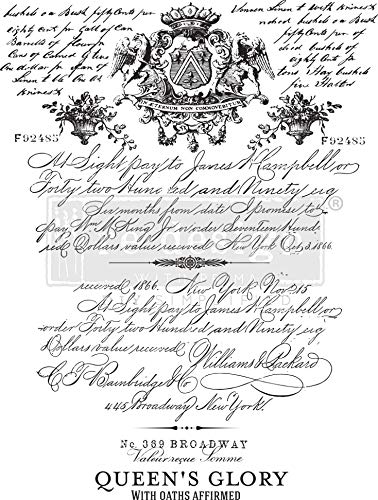 bushels on Bush
fifty cents per
eighty cent for Gall of Can
Barrells of flour for
Cents of Calined Linens
On dollar for
Linen t the On At
Kniones
Linnen t worth
Kniones
fifty cents per
dred bushels of
eighty cent for
tons Hay bushels
five Halter
IN ÆTERNUM NON COMMOVEBITUR
F92485
F92485
At Sight pay to James W. Campbell or
Forty two Hundred and Ninety eig
Six months from date I promise to
pay Wm M King Jr or order Seventeen Hund-
red Dollars value received New York Oct 3 1866.
®
received 1866. New York Nov 15
At Sight pay to James W. Campbell or
order Forty two Hundred and Ninety eig
Dollars value received
Williams & Packard
C. T. Bainbridge & Co
445 Broadway New York.
No. 369 BROADWAY
Valeur reçue Somme
QUEEN'S GLORY
WITH OATHS AFFIRMED